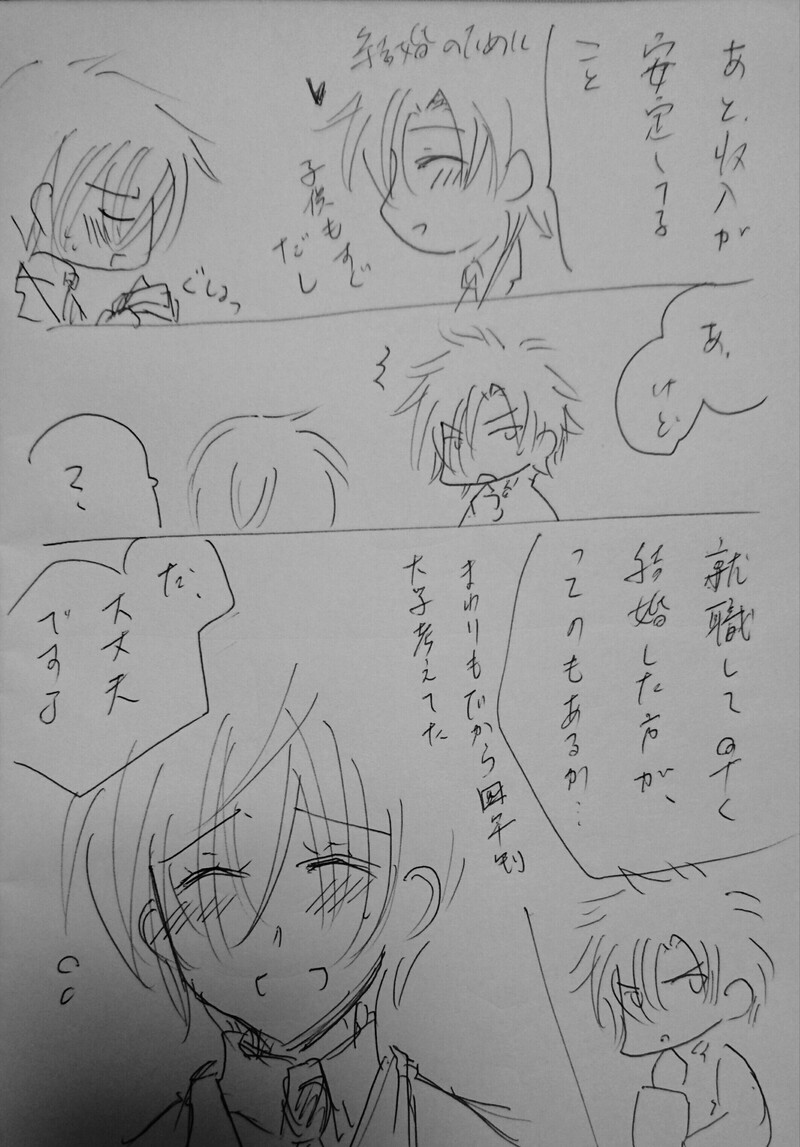 あと、収入が
安定してる
こと
結婚のために
子供もすぐ
だし
ぐしょっ
あ、
けど、
て、
就職して
結婚した方が、
ってのもあるか…
まわりもだから四年制
大学考えてた
だ、
大丈夫
ですよ